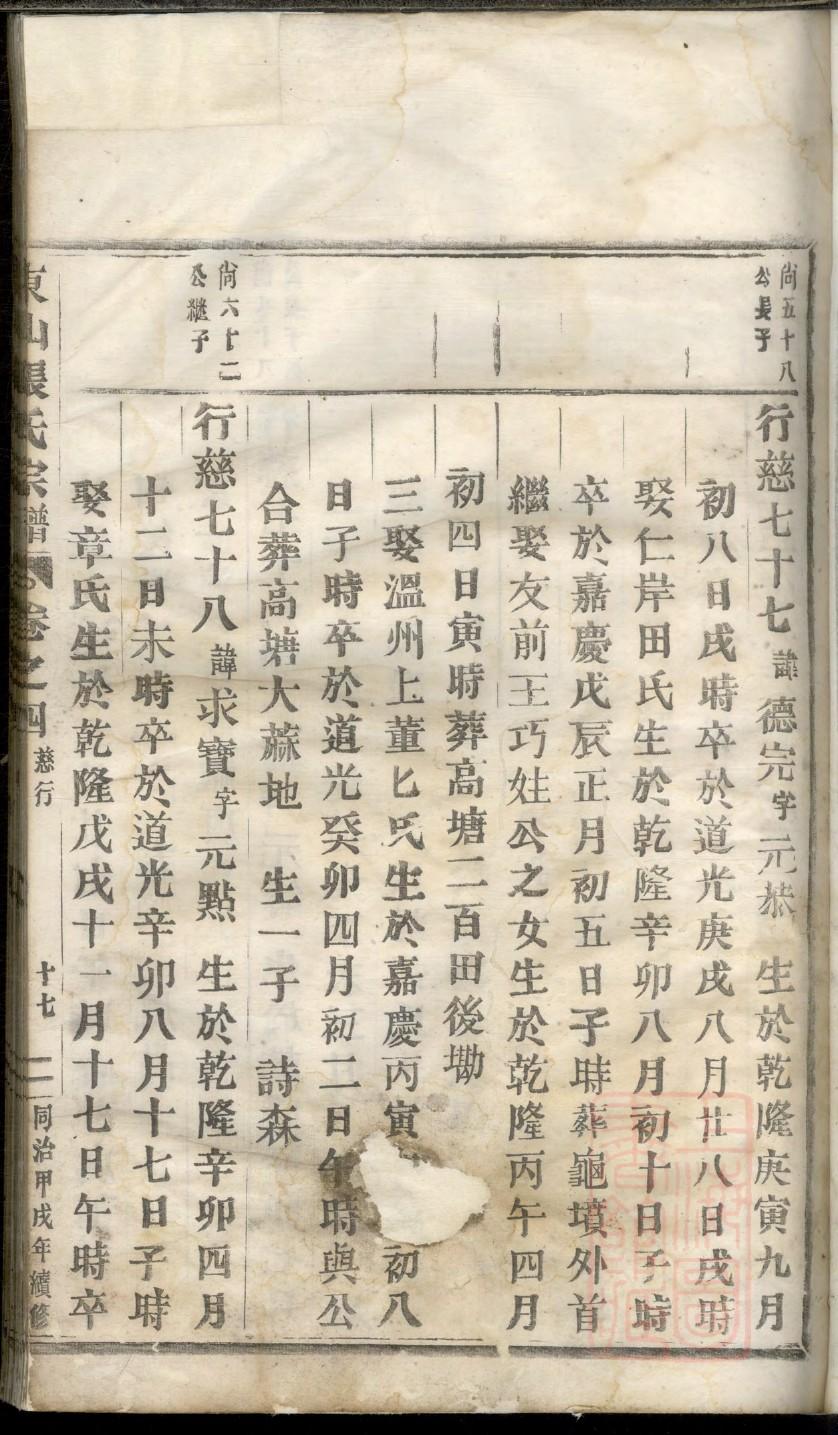 尚五十八
公長子
行慈七十七諱德完字元恭 生於乾隆庚寅九月
初八日戌時卒於道光庚戌八月廿八日戌時
娶仁岸田氏生於乾隆辛卯八月初十日子時
卒於嘉慶戊辰正月初五日子時葬龜墳外首
繼娶友前王巧姓公之女生於乾隆丙午四月
初四日寅時葬高塘二百田後墈
三娶溫州上董匕氏生於嘉慶丙寅 初八
日子時卒於道光癸卯四月初二日午時與公
合葬高塘大蔴地 生一子 詩森
尚六十二
公繼子
行慈七十八諱求寶字元點 生於乾隆辛卯四月
十二日未時卒於道光辛卯八月十七日子時
娶章氏生於乾隆戊戌十一月十七日午時卒
東山張氏宗譜 卷之四 慈行 十七 同治甲戌年續修